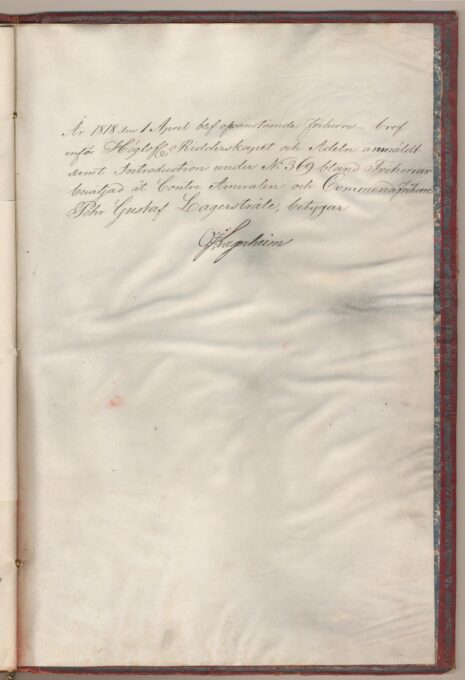 År 1818 den 1 April blef ofvanstående friherre-bref
inför Höglofl. Ridderskapet och Adeln anmäldt
samt Introduction under No 369 bland Friherrar
beviljad åt Contre Amiralen och
Pehr Gustaf Lagerstråle, betygar